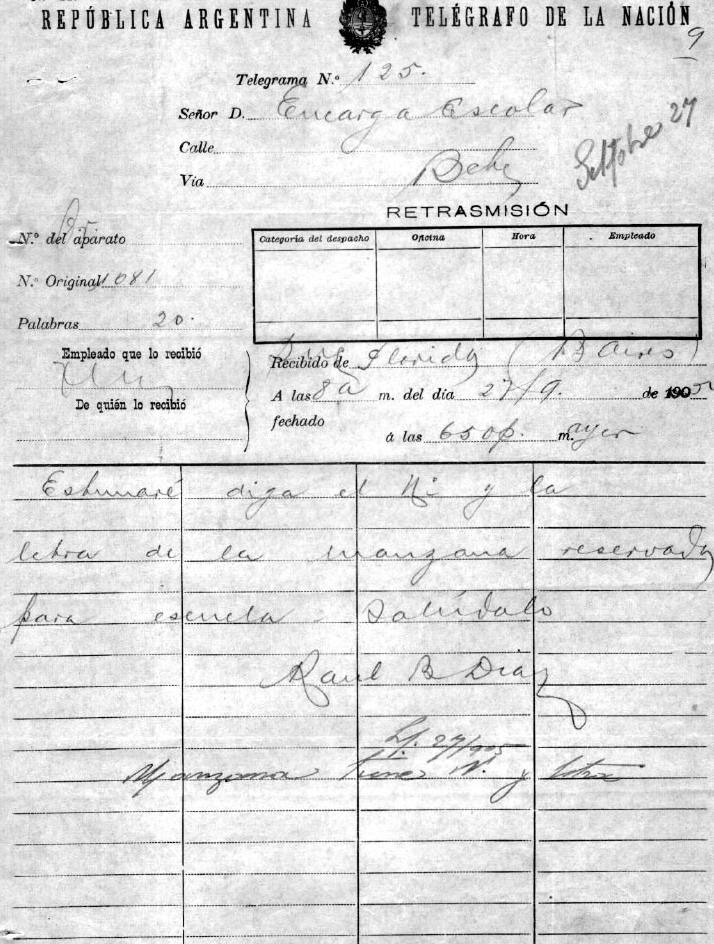 REPÚBLICA ARGENTINA TELÉGRAFO DE LA NACIÓN
9
Telegrama N.º 125.
Señor D. Encarga Escolar
Calle
Via
Settbre 27
RETRASMISIÓN
N.º del aparato
Categoría del despacho Oficina Hora Empleado
N.º Original 1081
Palabras 20.
Empleado que lo recibió
Recibido de Florida (B Aires)
De quién lo recibió
A las 8 a m. del día 27/9. de 1905
fechado
á las 650 p. m. ayer
Estimaré diga el Nº y la
letra de la manzana reservada
para escuela Salúdalo
Raul B Diaz
27/905
Manzana tiene N. y letra